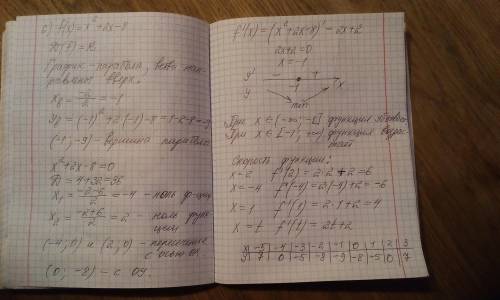 c) f(x) = x² + 2x - 8
D(f) = R.
График - парабола, ветви направлены вверх.
x₀ = -2/2 = -1
y₀ = (-1)² + 2·(-1) - 8 = 1 - 2 - 8 = -9
(-1; -9) - вершина параболы
x² + 2x - 8 = 0
D = 4 + 32 = 36
x₁ = (-2-6)/2 = -4 - ноль функции
x₂ = (-2+6)/2 = 2 - ноль функции
(-4; 0) и (2; 0) - пересечение
с осью ОХ
(0; -8) - с OY.
f'(x) = (x² + 2x - 8)' = 2x + 2
2x + 2 = 0
x = -1
y' - + x
y -1
min
При x ∈ (-∞; -1] функция убывает
При x ∈ [-1; +∞) функция возрастает
Скорость функции:
x = 2 f'(2) = 2·2 + 2 = 6
x = -4 f'(-4) = 2·(-4) + 2 = -6
x = 1 f'(1) = 2·1 + 2 = 4
x = t f'(t) = 2t + 2
x -5 -4 -3 -2 -1 0 1 2 3
y 7 0 -5 -8 -9 -8 -5 0 7